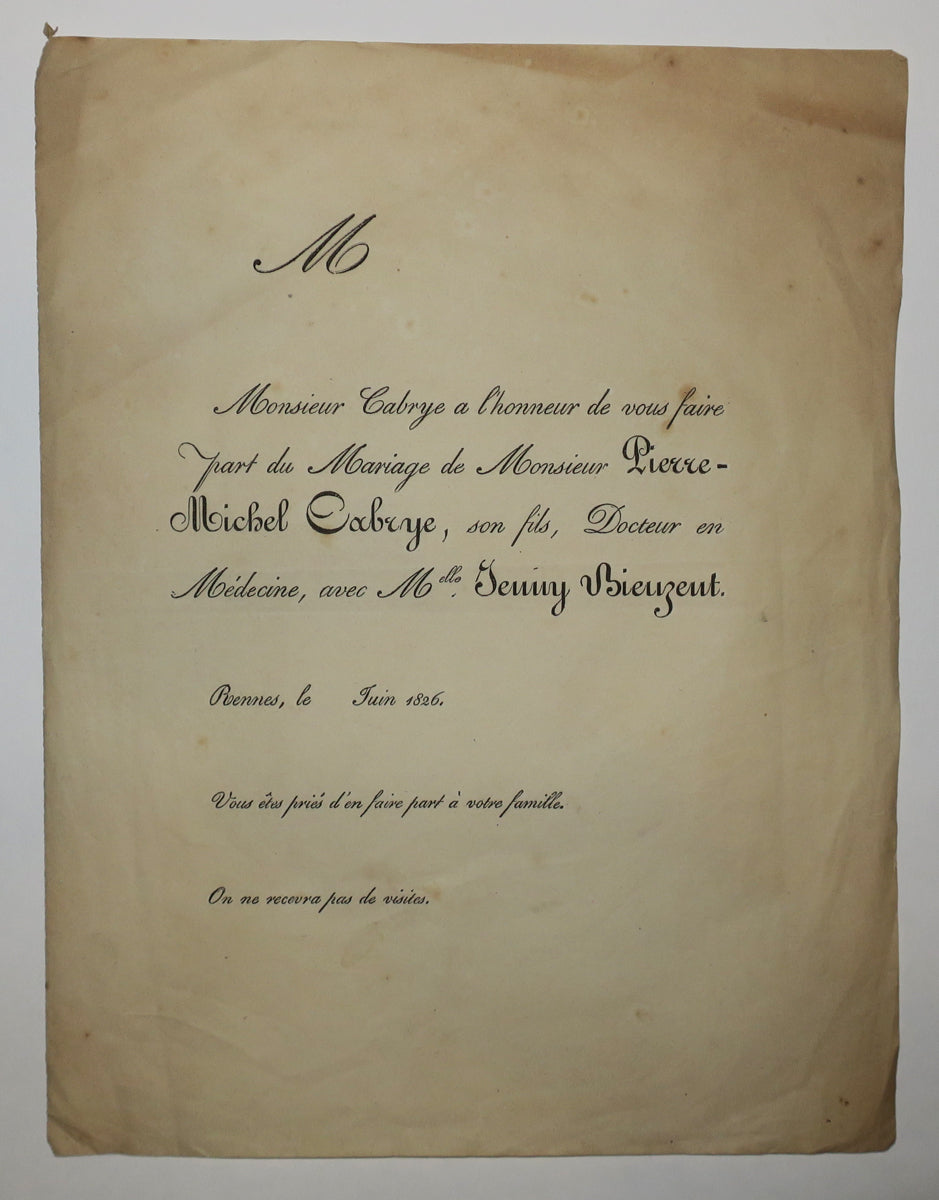 M
Monsieur Cabrye a l'honneur de vous faire
part du Mariage de Monsieur Pierre-
Michel Cabrye, son fils, Docteur en
Médecine, avec M.elle Jenny Bieuzent.
Rennes, le Juin 1826.
Vous êtes priés d'en faire part à votre famille.
On ne recevra pas de visites.